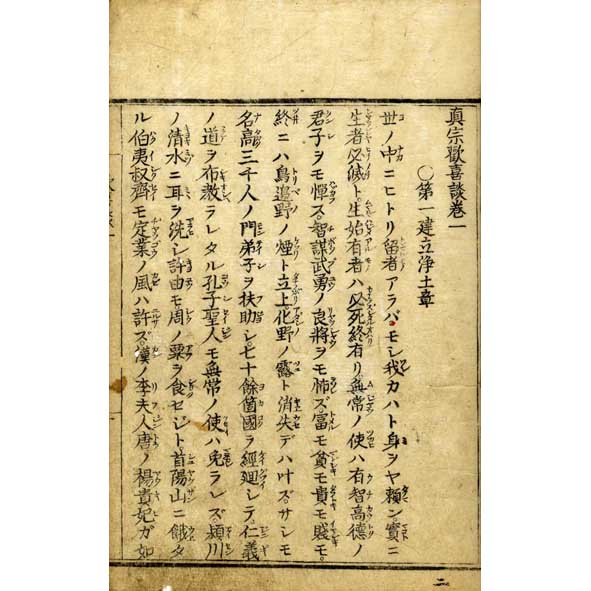 真宗歓喜談巻一
〇第一建立浄土章
世ノ中ニヒトリ留者アラバ。モシ我カハト身ヲヤ頼ン實ニ
生者必滅ト。生始有者ハ必死終有リ無常ノ使ハ有智高徳ノ
君子ヲモ憚ズ。智謀武勇ノ良將ヲモ怖ズ富モ貧モ貴モ賤モ。
終ニハ鳥邉野ノ煙ト立上。化野ノ露ト消失デハ叶ズ。サシモ
名高三千人ノ門弟子ヲ扶助シ。七十餘箇國ヲ經廻シテ。仁義
ノ道ヲ布教ラレタル孔子聖人モ無常ノ使ハ免ラレズ潁川
ノ清水ニ耳ヲ洗シ許由モ周ノ粟ヲ食セジト首陽山ニ餓タ
ル伯夷叔齊モ定業ノ風ハ許ズ。漢ノ李夫人唐ノ楊貴妃ガ如
二